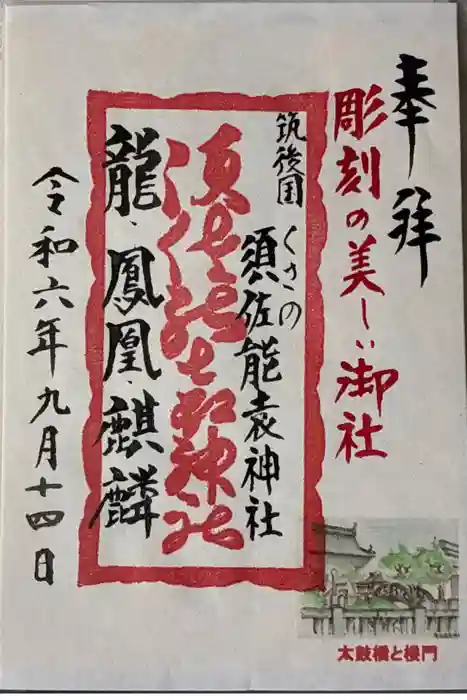 奉拝
彫刻の美しい御社
筑後国
くさの
須佐能袁神社
龍・鳳凰・麒麟
令和六年九月十四日
太鼓橋と楼門